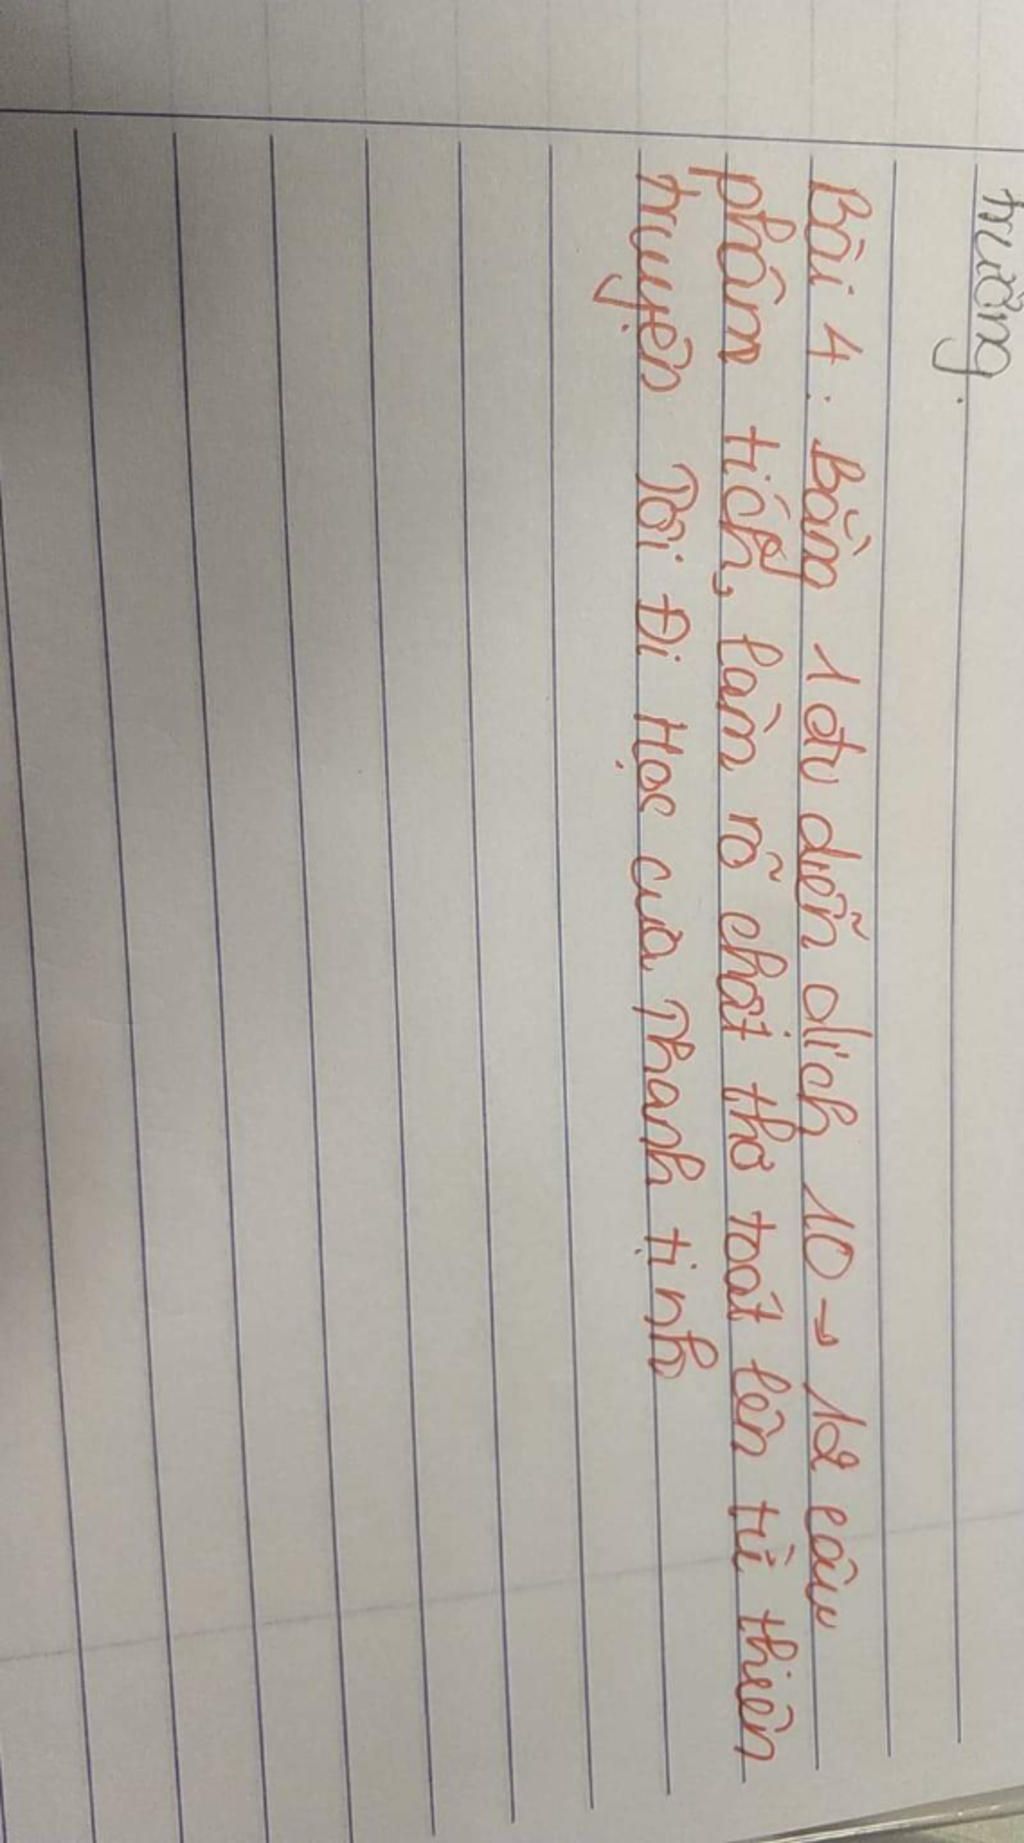 trường.
Bài 4: Bằng 1 đv diễn dịch 10 → 12 câu
phân tích, làm rõ chất thơ toát lên từ thiên
truyện Tôi Đi Học của Thanh tịnh